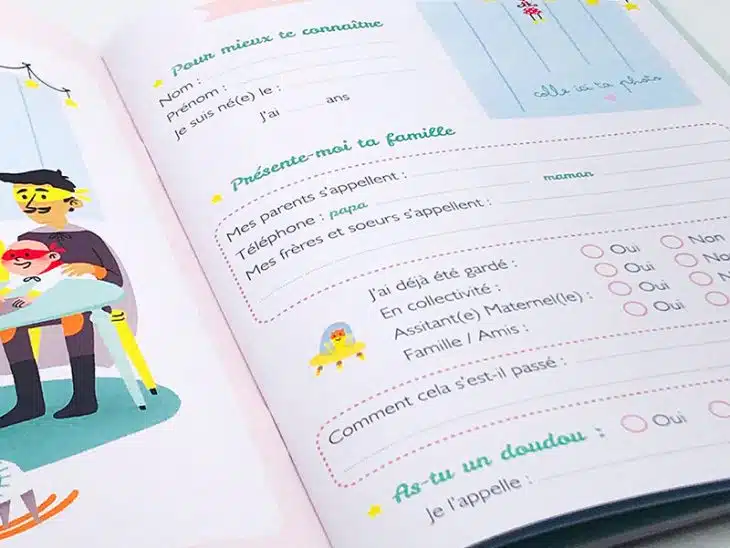 Pour mieux te connaître
Nom :
Prénom :
Je suis né(e) le :
J'ai ans
colle ici ta photo
Présente-moi ta famille
Mes parents s'appellent :
Téléphone : papa maman
Mes frères et soeurs s'appellent :
J'ai déjà été gardé : Oui Non
En collectivité : Oui No
Assitant(e) Maternel(le) : Oui N
Famille / Amis : Oui
Comment cela s'est-il passé :
As-tu un doudou : Oui
Je l'appelle :